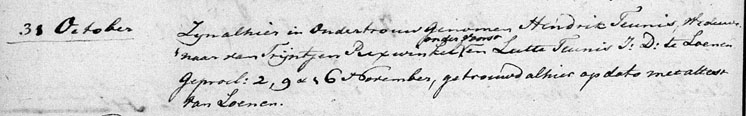 31 October Zyn alhier in Ondertrouw Genomen Hendrik Teunis, Weduwe-
onder Voorst
naar van Trijntjen Rexwinkel, en Lutte Teunis J: D: te Loenen
Geprocl: 2, 9 & 16 November, getrouwd alhier op dato met attest
van Loenen.